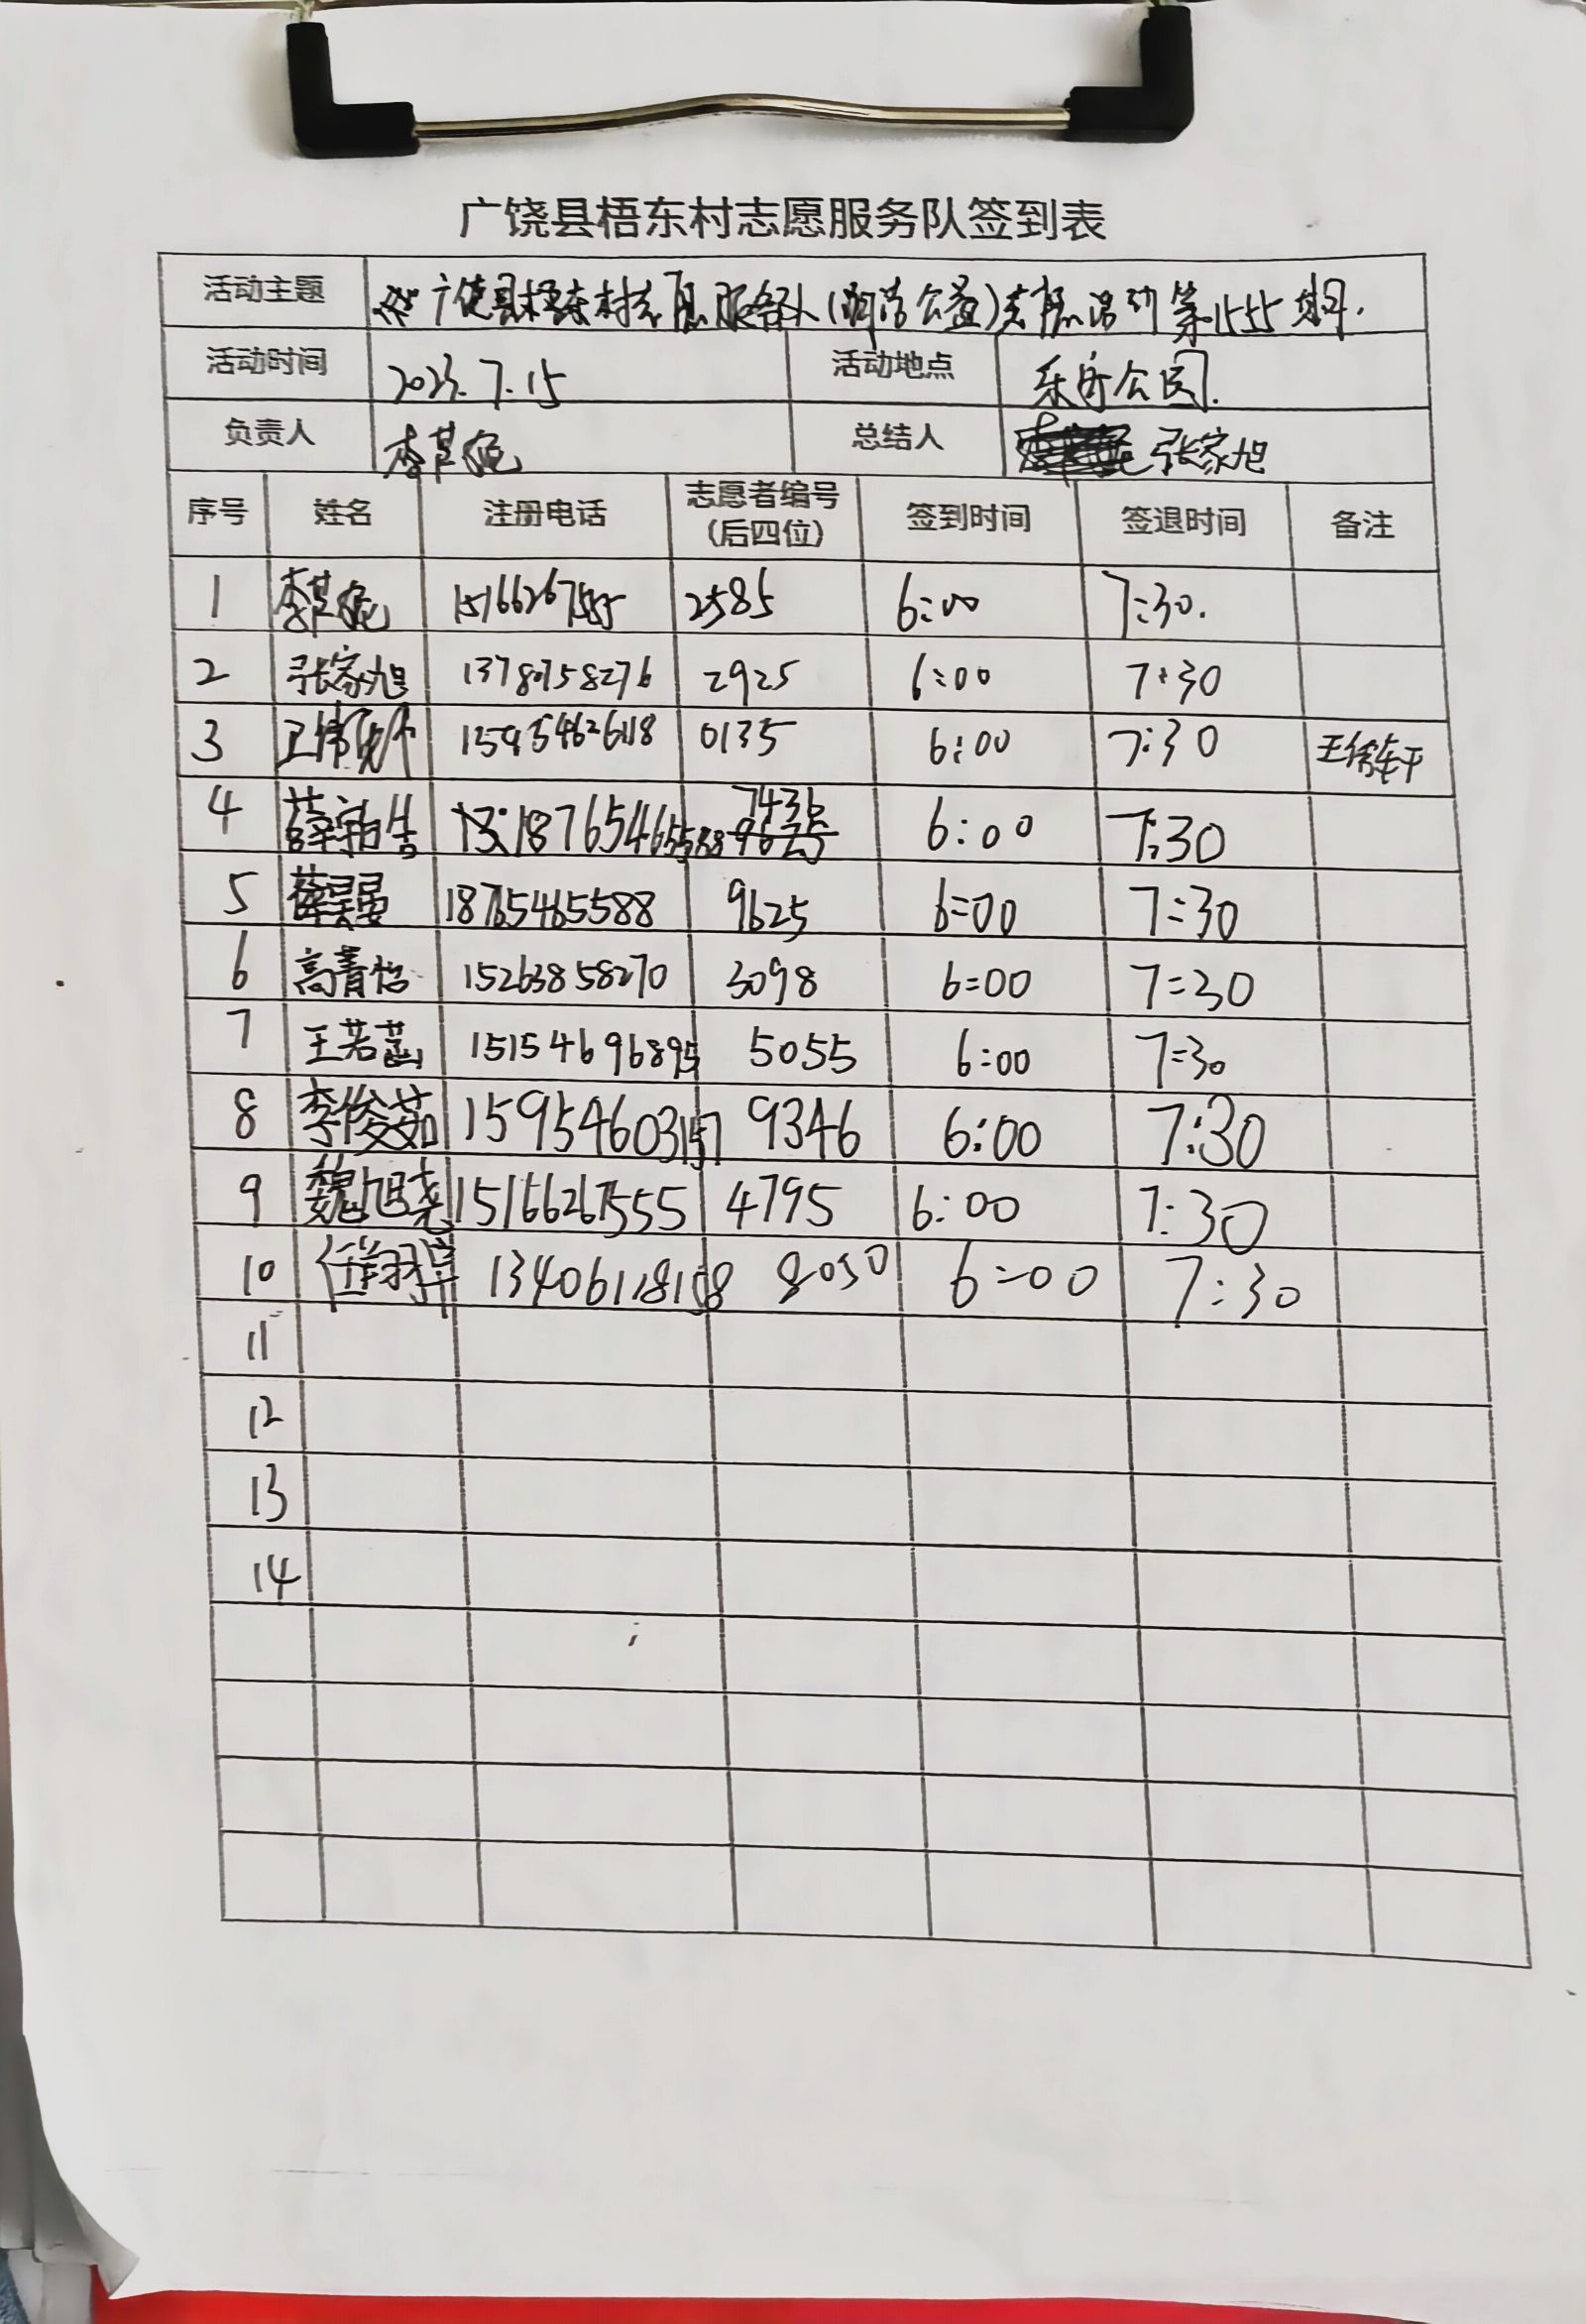 广饶县梧东村志愿服务队签到表
活动主题 广饶县梧东村志愿服务队(润浩公益)志愿活动第1555期
活动时间 2023.7.15 活动地点 乐安公园.
负责人 总结人 张家旭
序号 姓名 注册电话 志愿者编号(后四位) 签到时间 签退时间 备注
1 15166267555 2585 6:00 7:30.
2 张家旭 13780758276 2925 6:00 7:30
3 15954626118 0135 6:00 7:30
4 18765465588 7436 6:00 7:30
5 薛昊晏 18765465588 9625 6:00 7:30
6 高菁怡 15263858270 3098 6:00 7:30
7 王若菡 15154696895 5055 6:00 7:30
8 李俊茹 15954603157 9346 6:00 7:30
9 魏旭尧 15166267555 4795 6:00 7:30
10 任翔 13406118108 8050 6:00 7:30
11
12
13
14